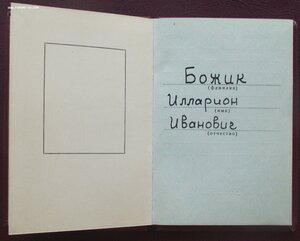 Божик
(фамилия)
Илларион
(имя)
Иванович
(отчество)